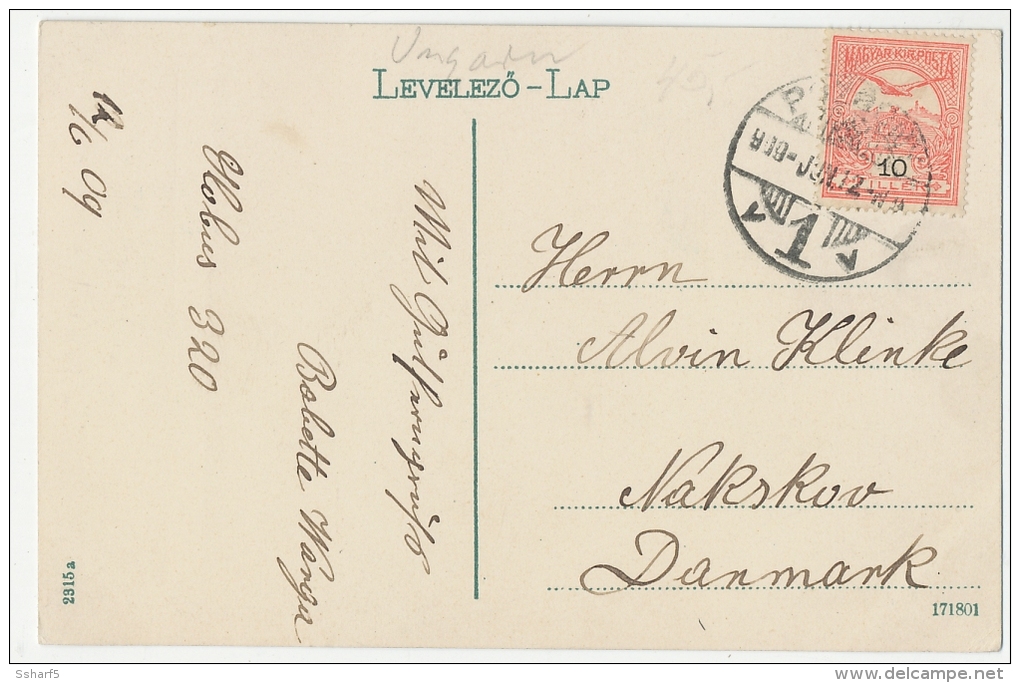 Ungarn
LEVELEZŐ-LAP
45,-
MAGYAR·KIR·POSTA
10
FILLÉR
16/6 09
Globus 320
Mit Gutferngruß
Babette Warga
Herrn
Alvin Klinke
Nakskov
Danmark
2315a
171801
Ssharf5
www.delcampe.net